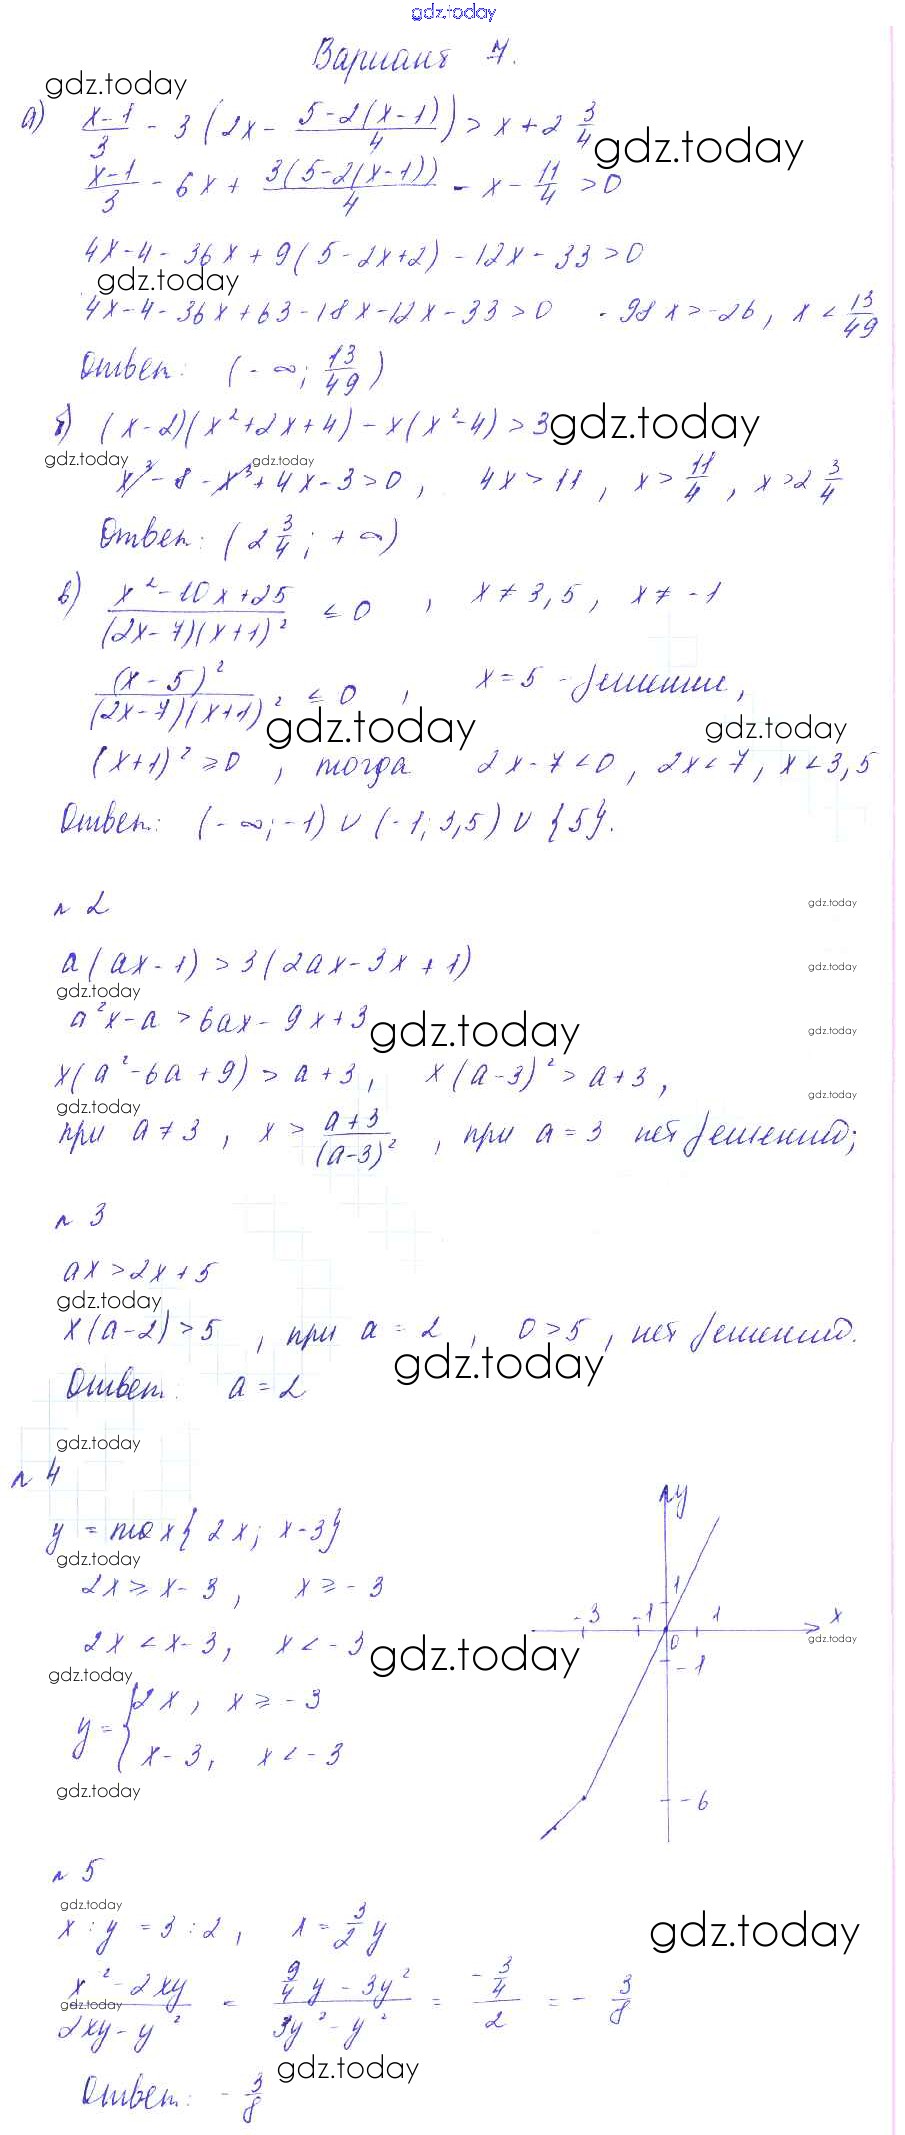 gdz.today
Вариант 7.
gdz.today
а) (x-1)/3 - 3(2x - (5-2(x-1))/4) > x + 2 3/4
gdz.today
(x-1)/3 - 6x + 3(5-2(x-1))/4 - x - 11/4 > 0
4x-4-36x+9(5-2x+2)-12x-33>0
gdz.today
4x-4-36x+63-18x-12x-33>0 -98x>-26, x < 13/49
Ответ: (-∞; 13/49)
б) (x-2)(x²+2x+4)-x(x²-4)>3
gdz.today
gdz.today gdz.today
x³-8-x³+4x-3>0, 4x>11, x>11/4, x>2 3/4
Ответ: (2 3/4; +∞)
в) (x²-10x+25)/((2x-7)(x+1)²) ≤ 0, x≠3,5, x≠-1
(x-5)²/((2x-7)(x+1)²) ≤ 0, x=5 - решение,
gdz.today gdz.today
(x+1)²≥0, тогда 2x-7<0, 2x<7, x<3,5
Ответ: (-∞;-1)∪(-1;3,5)∪{5}.
№2
gdz.today
a(ax-1)>3(2ax-3x+1)
gdz.today
gdz.today
a²x-a>6ax-9x+3
gdz.today
gdz.today
x(a²-6a+9)>a+3, x(a-3)²>a+3,
gdz.today
gdz.today
при a≠3, x>(a+3)/(a-3)², при a=3 нет решений;
№3
ax>2x+5
gdz.today
x(a-2)>5, при a=2, 0>5, нет решений.
gdz.today
Ответ: a=2
gdz.today
№4
y=max{2x; x-3}
gdz.today
2x≥x-3, x≥-3
2x<x-3, x<-3
gdz.today
gdz.today
y={2x, x≥-3
x-3, x<-3
gdz.today
y
1
-3 -1 1 x
0
gdz.today
-1
-6
№5
gdz.today
x:y=3:2, x=3/2 y
gdz.today
(x²-2xy)/(2xy-y²) = (9/4 y-3y²)/(3y²-y²) = (-3/4)/2 = -3/8
gdz.today
gdz.today
Ответ: -3/8